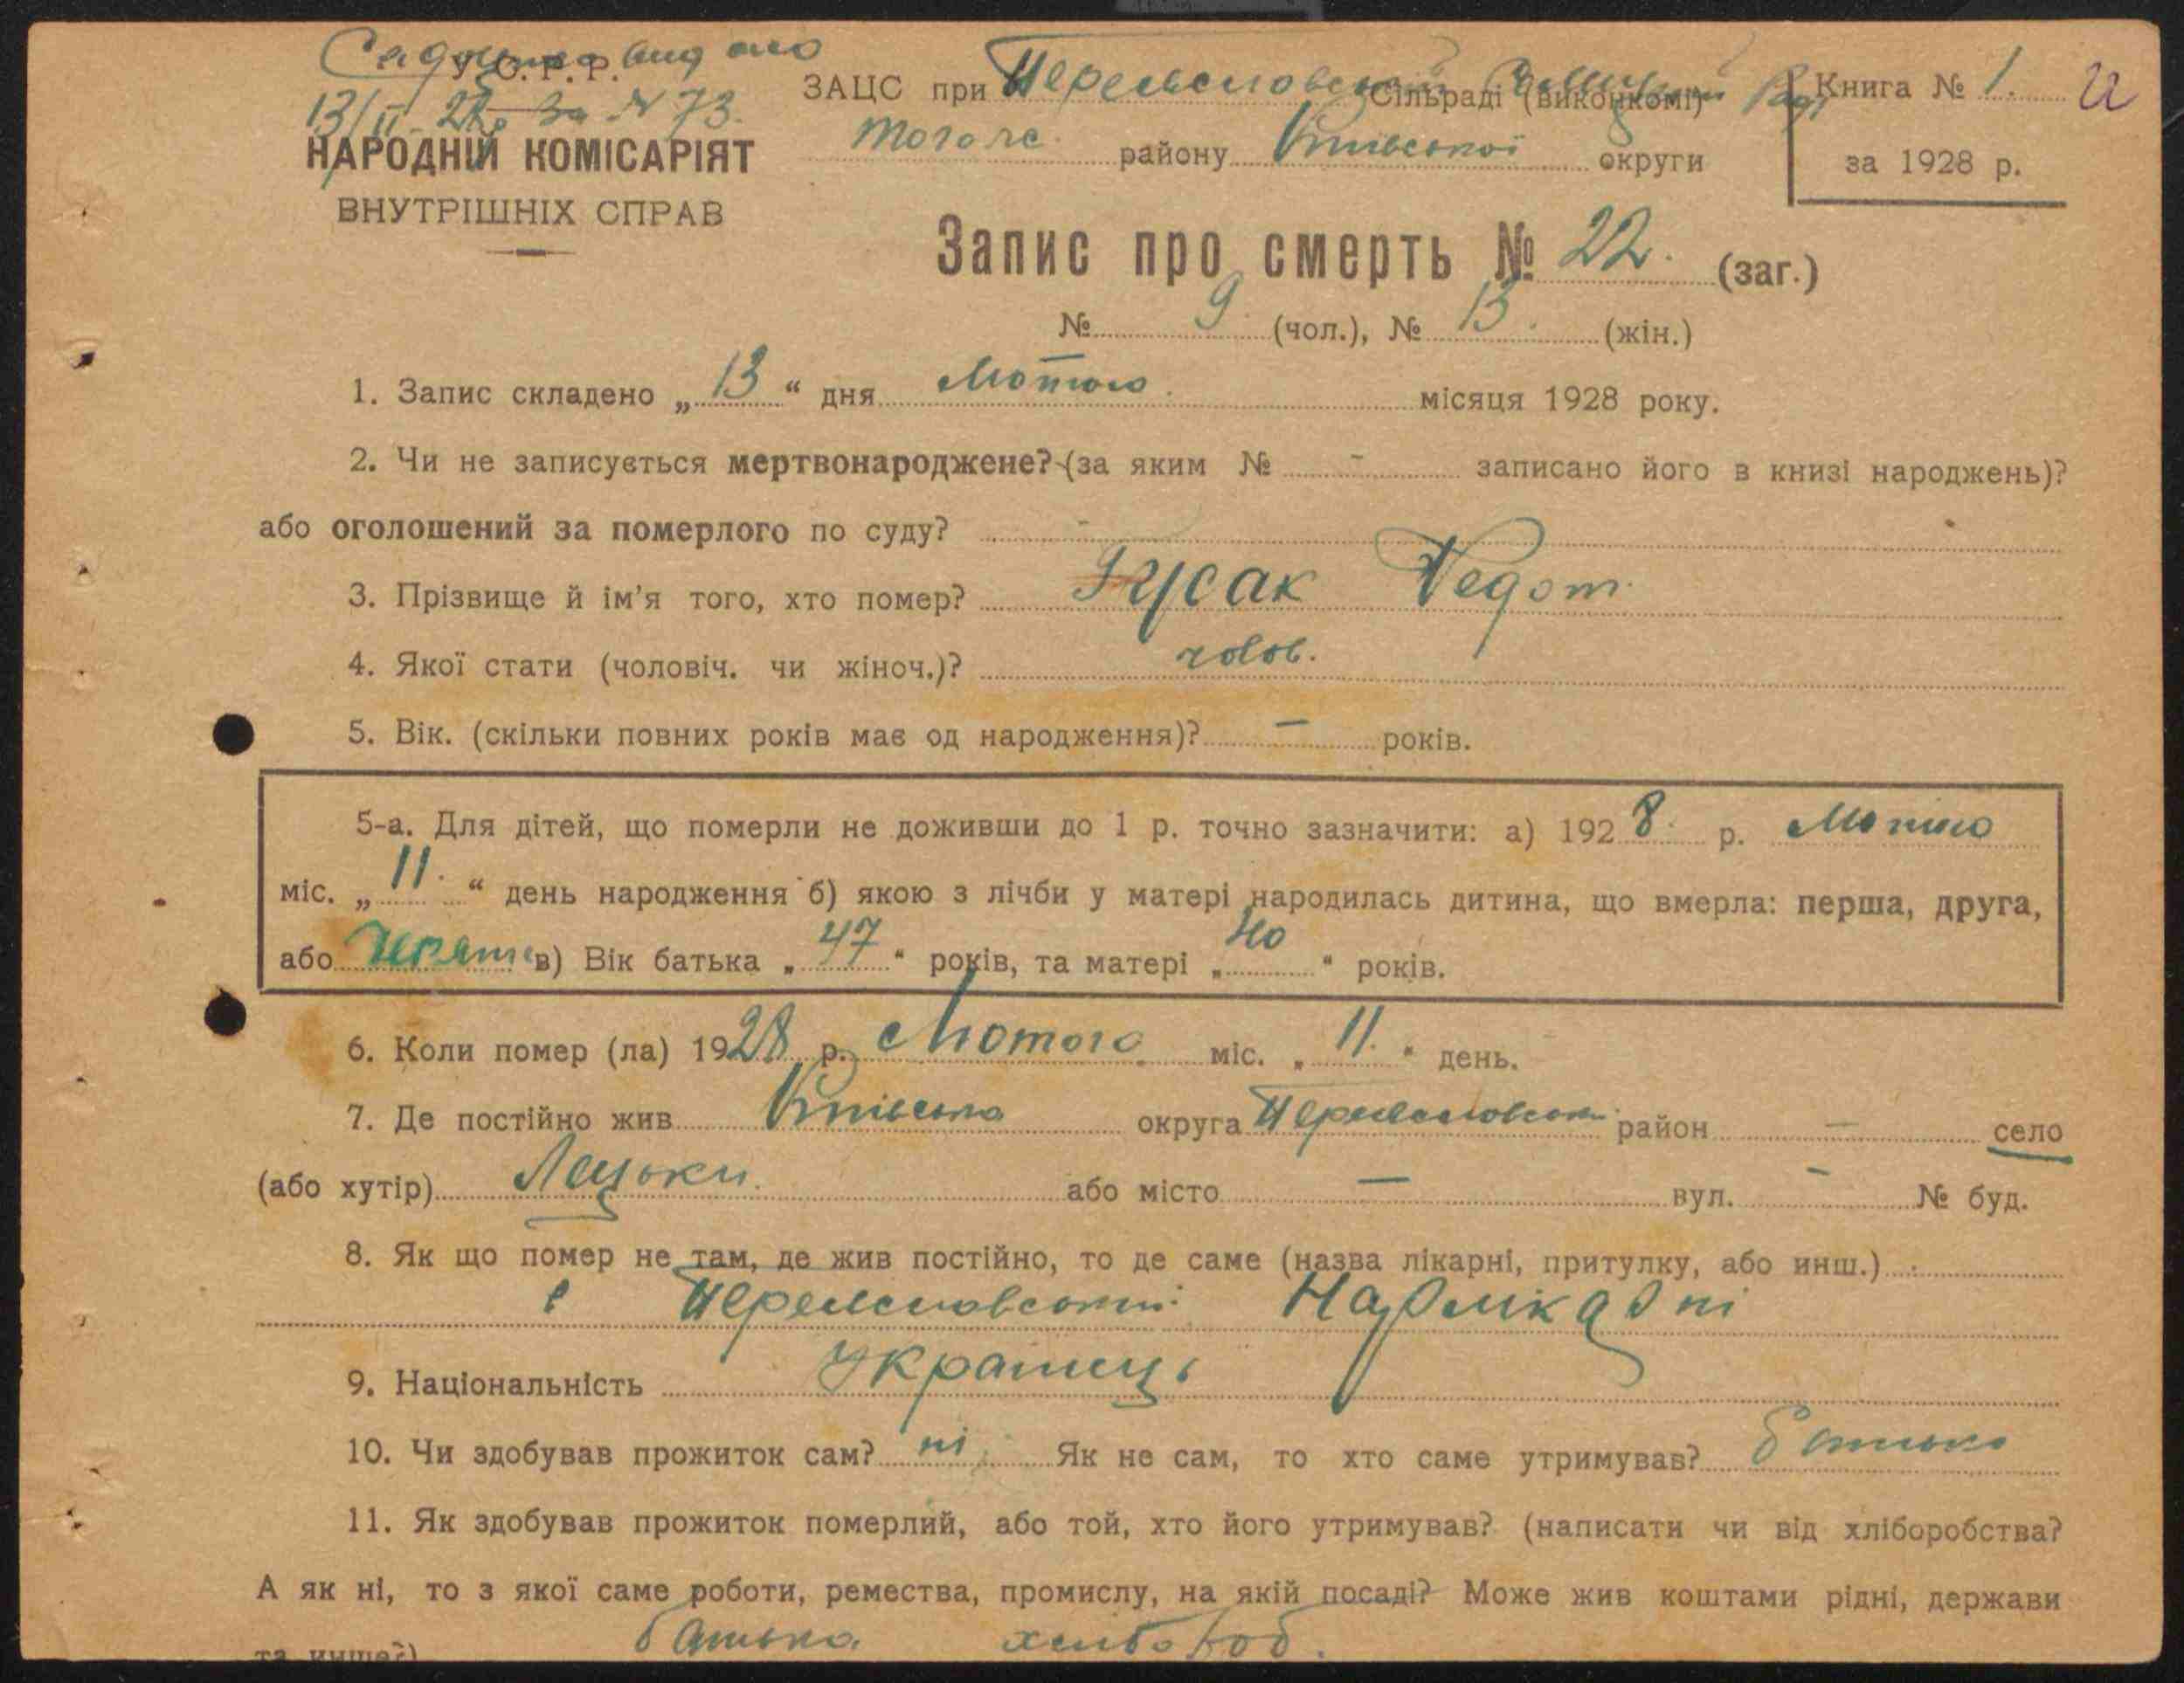 У. С. Р. Р.
13/II 28 за № 73.
НАРОДНІЙ КОМІСАРІЯТ
ВНУТРІШНІХ СПРАВ
ЗАЦС при Сільраді (виконкомі)
того ж району Київської округи
Книга № 1.
за 1928 р.
Запис про смерть № 22. (заг.)
№ 9 (чол.), № 13. (жін.)
1. Запис складено „13“ дня Лютого місяця 1928 року.
2. Чи не записується мертвонароджене? (за яким № - записано його в книзі народжень)?
або оголошений за померлого по суду? -
3. Прізвище й ім'я того, хто помер? Гусак Федот
4. Якої стати (чоловіч. чи жіноч.)? чолов.
5. Вік. (скільки повних років має од народження)? — років.
5-а. Для дітей, що померли не доживши до 1 р. точно зазначити: а) 1928 р. Лютого
міс. „11.“ день народження б) якою з лічби у матері народилась дитина, що вмерла: перша, друга,
або в) Вік батька „47“ років, та матері „40“ років.
6. Коли помер (ла) 1928 р. Лютого міс. „11.“ день.
7. Де постійно жив Київська округа район — село
(або хутір) Лецьки. або місто — вул. — № буд.
8. Як що помер не там, де жив постійно, то де саме (назва лікарні, притулку, або инш.)
Нарлікарні
9. Національність Українець
10. Чи здобував прожиток сам? ні Як не сам, то хто саме утримував? батько
11. Як здобував прожиток померлий, або той, хто його утримував? (написати чи від хліборобства?
А як ні, то з якої саме роботи, ремества, промислу, на якій посаді? Може жив коштами рідні, держави
та инше?) батька хлібороб.